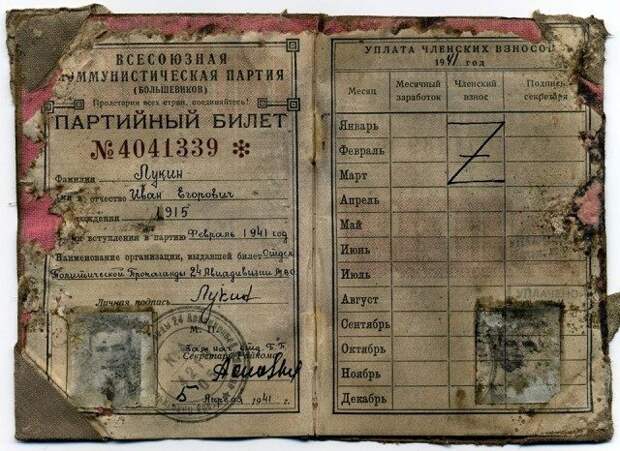 ВСЕСОЮЗНАЯ
КОММУНИСТИЧЕСКАЯ ПАРТИЯ
(БОЛЬШЕВИКОВ)
Пролетарии всех стран, соединяйтесь!
ПАРТИЙНЫЙ БИЛЕТ
№ 4041339
Фамилия Лукин
и отчество Иван Егорович
рождения 1915
вступления в партию Февраль 1941 год
Наименование организации, выдавшей билет Отдел
Политической Пропаганды 24 Авиадивизии
Личная подпись Лукин
М. П.
Секретарь райкома
5 Апреля 1941 г.
УПЛАТА ЧЛЕНСКИХ ВЗНОСОВ
1941 год
Месяц Месячный заработок Членский взнос Подпись секретаря
Январь
Февраль
Март
Z
Апрель
Май
Июнь
Июль
Август
Сентябрь
Октябрь
Ноябрь
Декабрь